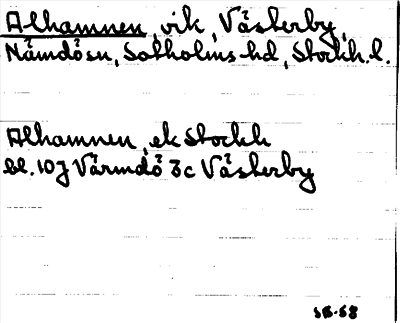 Alhamnen, vik, Västerby,
Nämdö sn, Sotholms hd, Stockh. l.
Alhamnen ek Stockh
bl. 10J Värmdö 3c Västerby